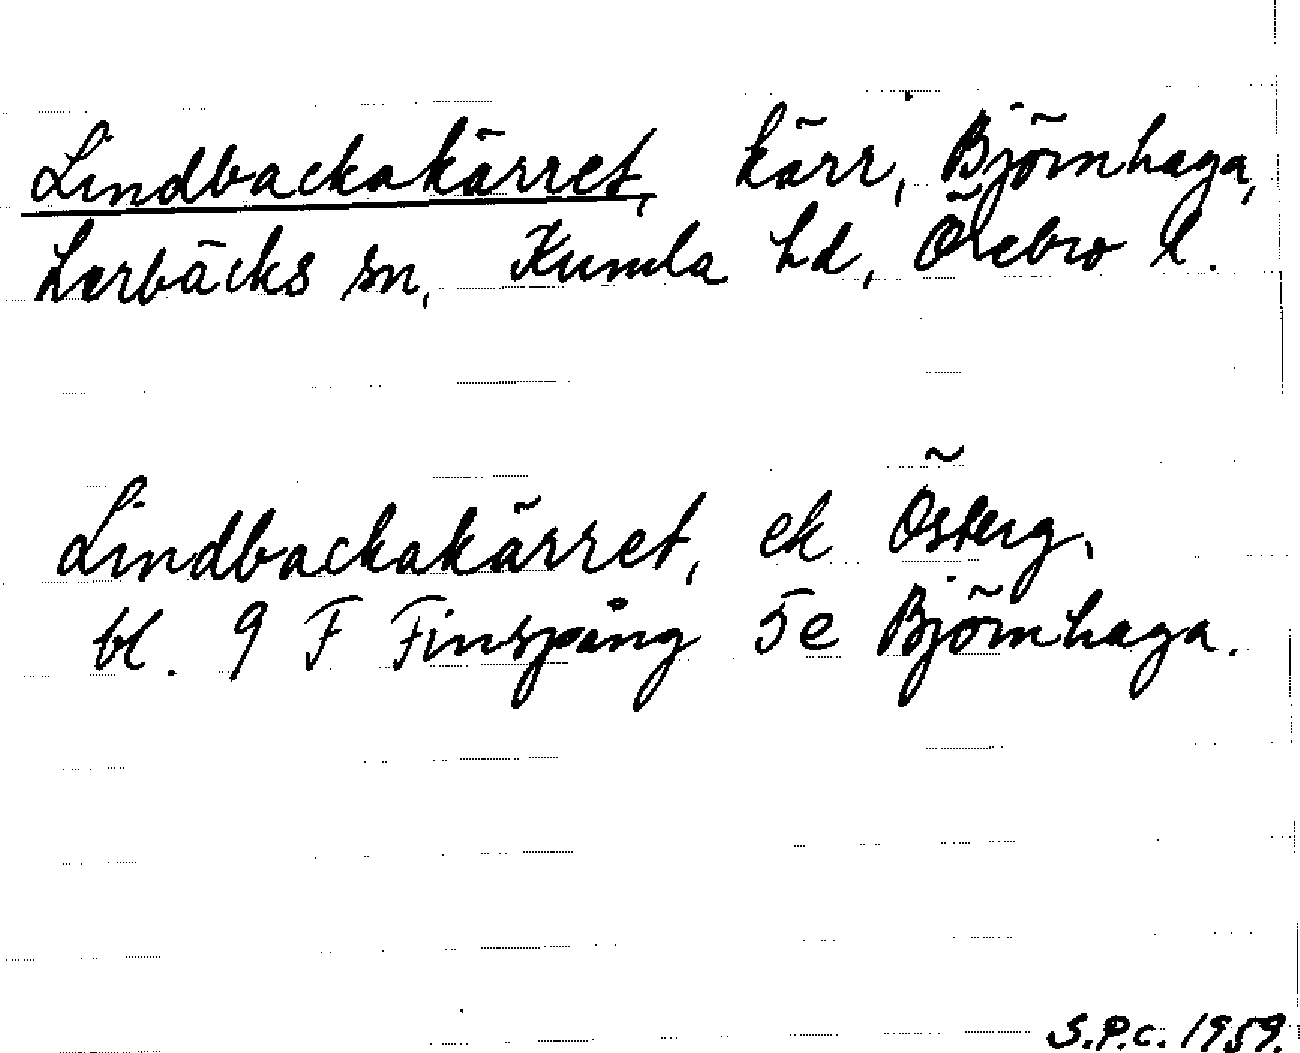 Lindbackakärret, kärr, Björnhaga,
Lerbäcks sn, Kumla hd, Örebro l.
Lindbackakärret, ek Österg,
bl. 9 F Finspång 5e Björnhaga.
S.P.C. 1959.